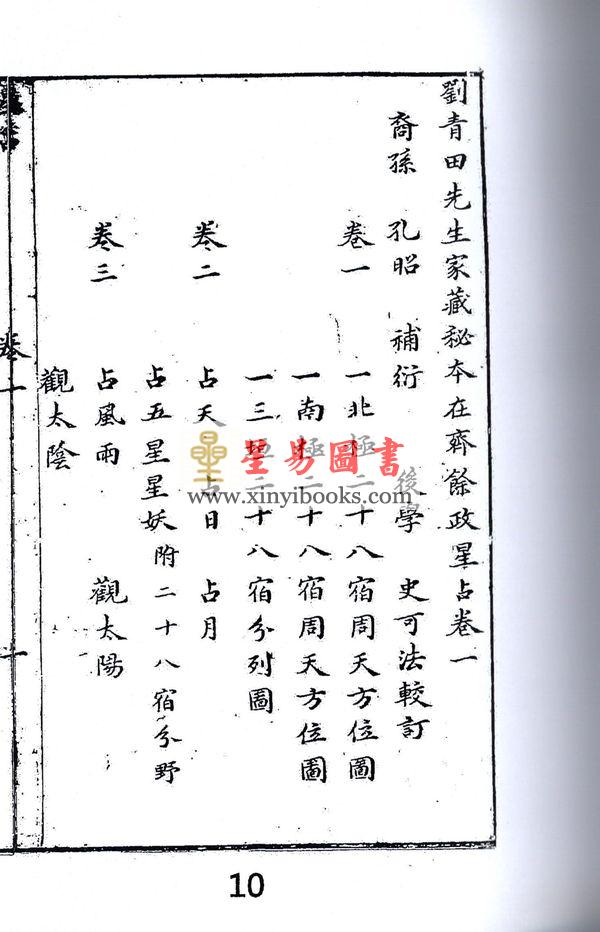 劉青田先生家藏秘本在齊餘政星占卷一
裔孫 孔昭 補衍 後學 史可法較訂
卷一 一北極二十八宿周天方位圖
一南極二十八宿周天方位圖
一三垣二十八宿分列圖
卷二 占天 占日 占月
占五星星妖附二十八宿分野
卷三 占風雨 觀太陽
觀太陰
卷一 十
星易圖書
www.xinyibooks.com
10